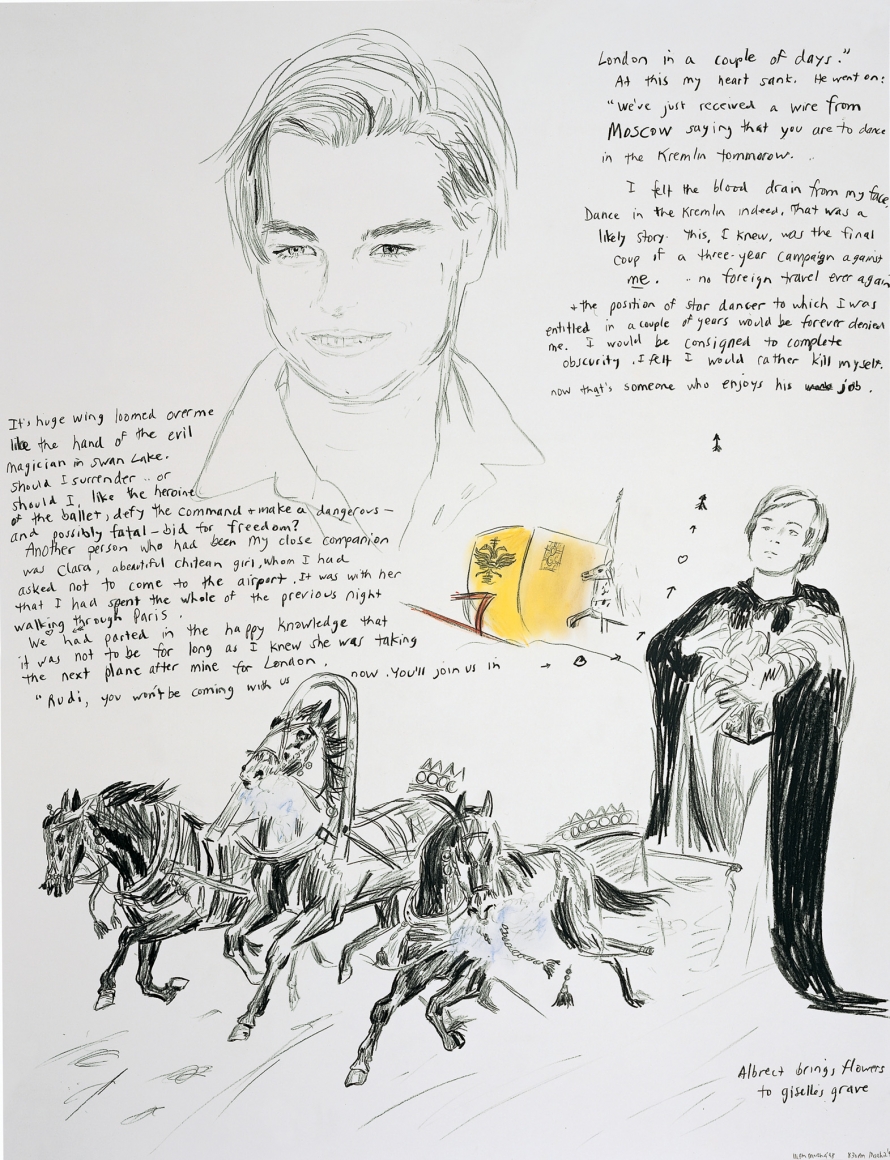 It's huge wing loomed over me
like the hand of the evil
magician in swan Lake.
should I surrender .. or
should I, like the heroine
of the ballet, defy the command + make a dangerous –
and possibly fatal – bid for freedom?
Another person who had been my close companion
was Clara, a beautiful chilean girl, whom I had
asked not to come to the airport. It was with her
that I had spent the whole of the previous night
walking through Paris.
We had parted in the happy knowledge that
it was not to be for long as I knew she was taking
the next plane after mine for London.
"Rudi, you won't be coming with us now. You'll join us in
London in a couple of days."
At this my heart sank. He went on:
"we've just received a wire from
Moscow saying that you are to dance
in the Kremlin tommorow. ..
I felt the blood drain from my face,
Dance in the Kremlin indeed. That was a
likely story. This, I knew, was the final
coup if a three-year campaign against
me. .. no foreign travel ever again
+ the position of star dancer to which I was
entitled in a couple of years would be forever denied
me. I would be consigned to complete
obscurity. I felt I would rather kill myself.
now that's someone who enjoys his job.
Albrect brings flowers
to giselles grave